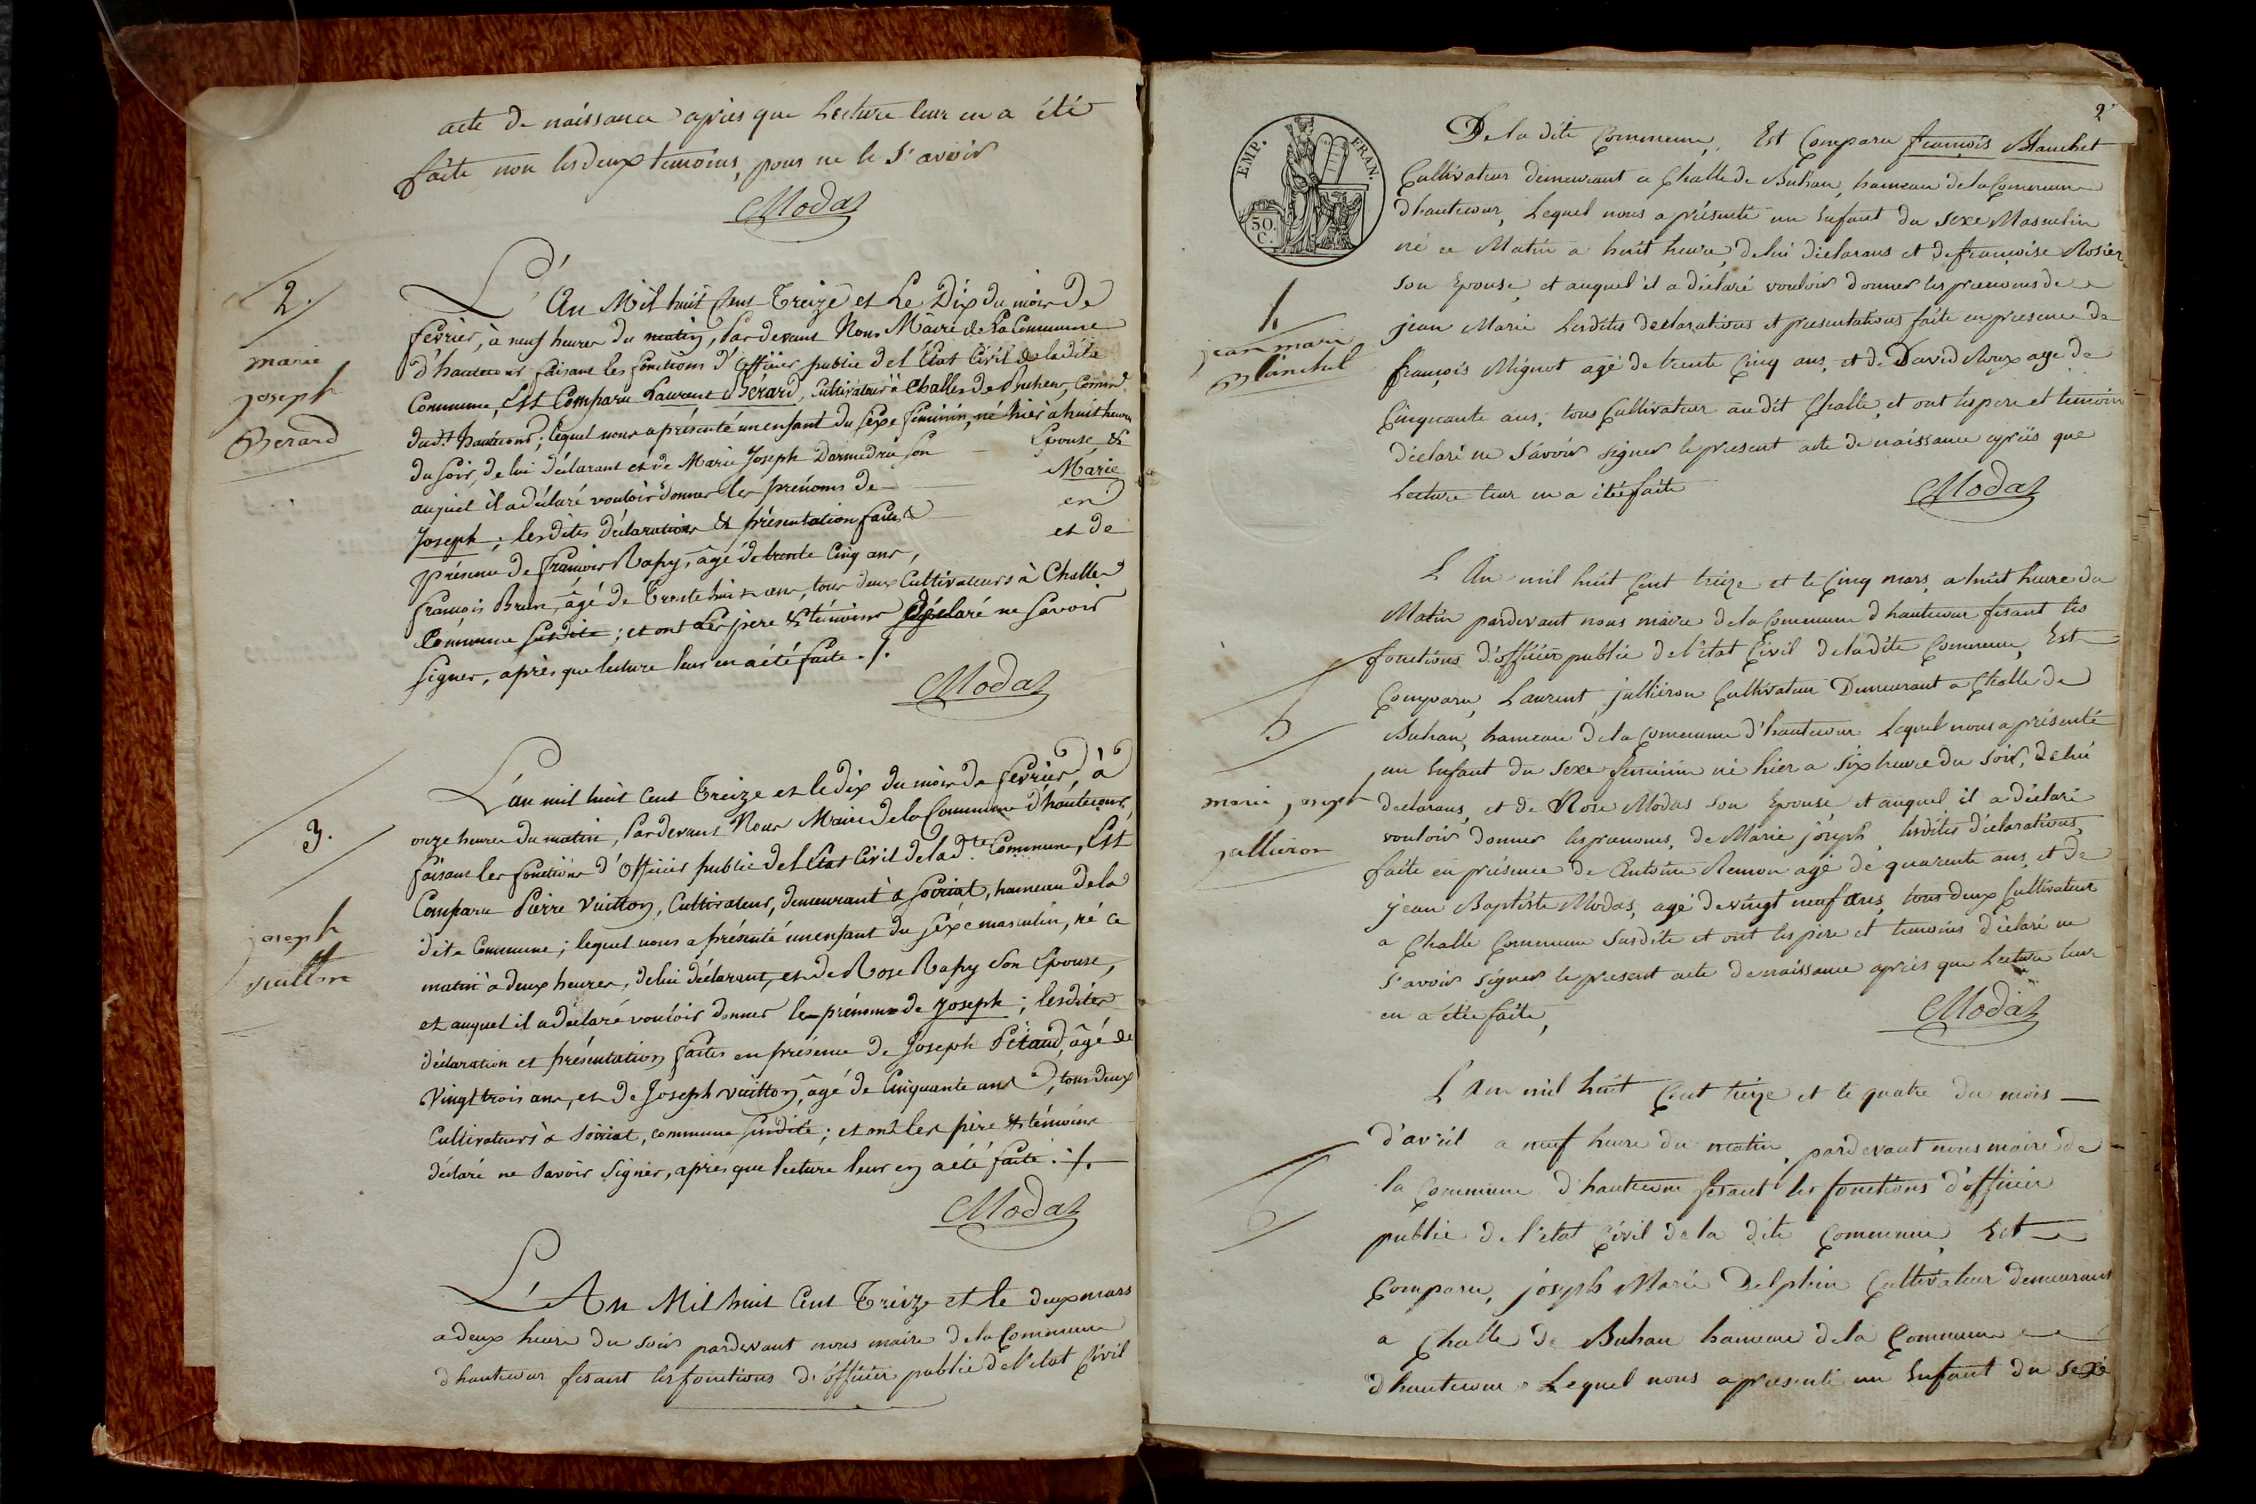 acte de naissance après que Lecture leur en a été
faite non les deux temoins, pour ne le s'avoir
Modaz
2.
marie
joseph
Berard
L'An Mil huit Cent Treize et Le Dix du mois De
fevrier, à neuf heures du matin, Pardevant Nous Maire de La Commune
d'hautecour faisant les fonctions d'Officier public del'État Civil de ladite
Commune, Est Comparu Laurent Berard, Cultivateur à Challes De
dud.t hautecour; lequel nous a présenté un enfant du sexe feminin, né hier à huit heures
du soir, de lui déclarant et de Marie Joseph Darmedru son Epouse, &
auquel il a déclaré vouloir donner les prénoms de Marie
Joseph; lesdites déclarations & présentation faites en
présence de françois Rapy, âgé de trente Cinq ans, et de
françois Brun, âgé de Trente huit ans, tous deux Cultivateurs à Challes
Commune susdite; et ont Les père & témoins déclaré ne savoir
signer, après que lecture leur en a été faite ./.
Modaz
3.
joseph
vuitton
L'an mil huit Cent Treize et le dix du mois de fevrier, à
onze heures du matin, Pardevant Nous Maire de la Commune d'hautecour,
faisant les fonctions d'Officier public del'État Civil de lad.te Commune, Est
Comparu Pierre Vuitton, Cultivateur, demeurant à , hameau de la
dite Commune; lequel nous a présenté un enfant du séxe masculin, né ce
matin à deux heures, de lui déclarant, et de Rose Rapy son Epouse,
et auquel il a déclaré vouloir donner le prénom de Joseph; lesdites
déclaration et présentation faites en présence de Joseph Pétaud, âgé de
Vingt trois ans, et de Joseph vuitton, âgé de Cinquante ans, tous deux
Cultivateurs à , commune susdite; et ont les père & témoins
déclaré ne savoir signer, après que lecture leur en a été faite ./.
Modaz
L'An Mil huit Cent Treize et le deux mars
a deux heure du soir pardevant nous maire de la Commune
d hautecour fesant les fonctions d'officier public de l'etat Civil
2
EMP. FRAN.
50. C.
De la dite Commune, Est Comparu françois Blanchet
Cultivateur demeurant a Challe de Buhan, hameau de la Commune
d hautecour, Lequel nous a présenté un Enfant du sexe Masculin
né ce Matin a huit heure, de lui déclarans et de françoise Rosier
son Epouse, et auquel il a déclaré vouloir donner les prenoms de
jean Marie Lesdites declarations et presentations faite en presence de
françois Mignot agé de trente Cinq ans, et de David Roux age de
Cinquante ans, tous Cultivateur au dit Challe, et ont les pere et temoin
déclaré ne s'avoir signer le present acte de naissance après que
Lecture leur en a étée faite
Modaz
jean marie
Blanchet
L An mil huit Cent treize et le Cinq mars, a huit heure du
Matin pardevant nous maire de la Commune d hautecour fesant les
fonctions d'officier public de l'état Civil de la dite Commune, Est
Comparu, Laurent jullieron Cultivateur Demeurant a Challe de
Buhan, hameau de la Commune d'hautecour Lequel nous a présenté
un Enfant du sexe feminin né hier a six heure du soir, de lui
declarans, et de Rose Modas son Epouse et auquel il a déclaré
vouloir donner les prenoms, de Marie joseph, lesdites déclarations,
faite en présence de Antoine Remon agé de quarente ans et de
jean Baptiste Modas, agé de vingt neuf ans, tous deux Cultivateur
a Challe Commune susdite et ont les père et temoins déclaré ne
s'avoir signer le present acte de naissance après que Lecture leur
en a étée faite,
Modaz
5
marie joseph
jullieron
L An mil huit Cent treize et le quatre du mois
d'avril a neuf heure du matin, pardevant nous maire de
la Commune d'hautecour fesant les fonctions d'officier
public de l'etat Civil de la dite Commune, Est
Comparu, joseph Marie Delphin Cultivateur demeurant
a Challe de Buhan hameau de la Commune
d'hautecour Lequel nous a présenté un Enfant du sexe
6